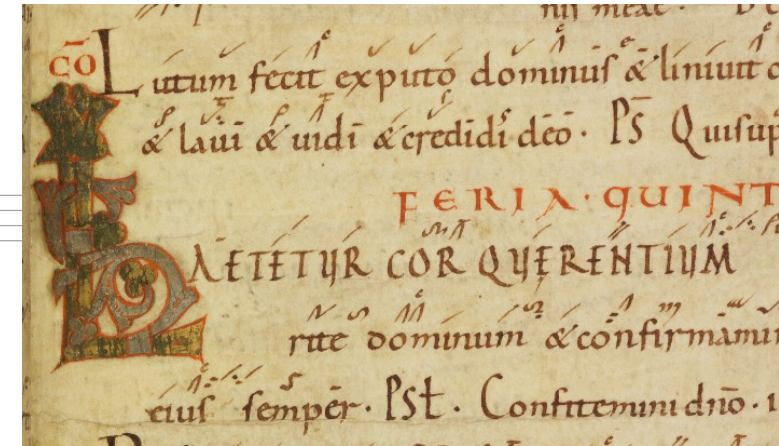 nis meae ·
CŌ Lutum fecit exputo dominus & liniuit o
& laui & uidi & credidi deo · PS̄ Quisup
FERIA · QUINT
LAETETUR COR QUĘRENTIUM
rite dominum & confirmamini
eius semper · PSŁ · Confitemini dn̄o ·